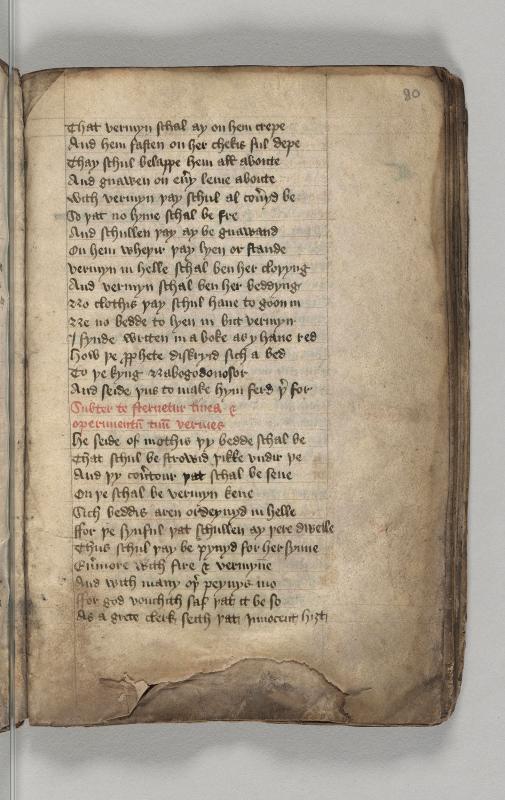 80
That vermyn schal ay on hem crepe
And hem fasten on her chekis ful depe
Thay schul belappe hem all aboute
And gnawen on eũy leme aboute
With vermyn þay schul al coũyd be
So þat no lyme schal be fre
And schullen þay ay be gnawand
On hem wheþir þay lyen or stande
Vermyn in helle schal ben her cloþyng
And vermyn schal ben her beddyng
No clothis þay schul haue to goon in
Ne no bedde to lyen in but vermyn
I fynde writen in a boke as y haue red
How þe ꝓphete diskryid sich a bed
To þe kyng Nabogodonosor
And seide þus to make hym ferd þͬ for
Subter te sternetur tinea &
operimentũ tuũ vermes
He seide of mothis þy bedde schal be
That schul be strowid þikke vndir þe
And þy couͬtour þat schal be sene
On þe schal be vermyn kene
Sich beddis aren ordeynyd in helle
ffor þe synful þat schullen ay þere dwelle
Thus schul þay be pynyd for her synne
Euͬmore with fire & vermyne
And with many oþͬ peynys mo
ffor god vouchith saf þat it be so
As a grete clerk seith þat Innocent hiȝt